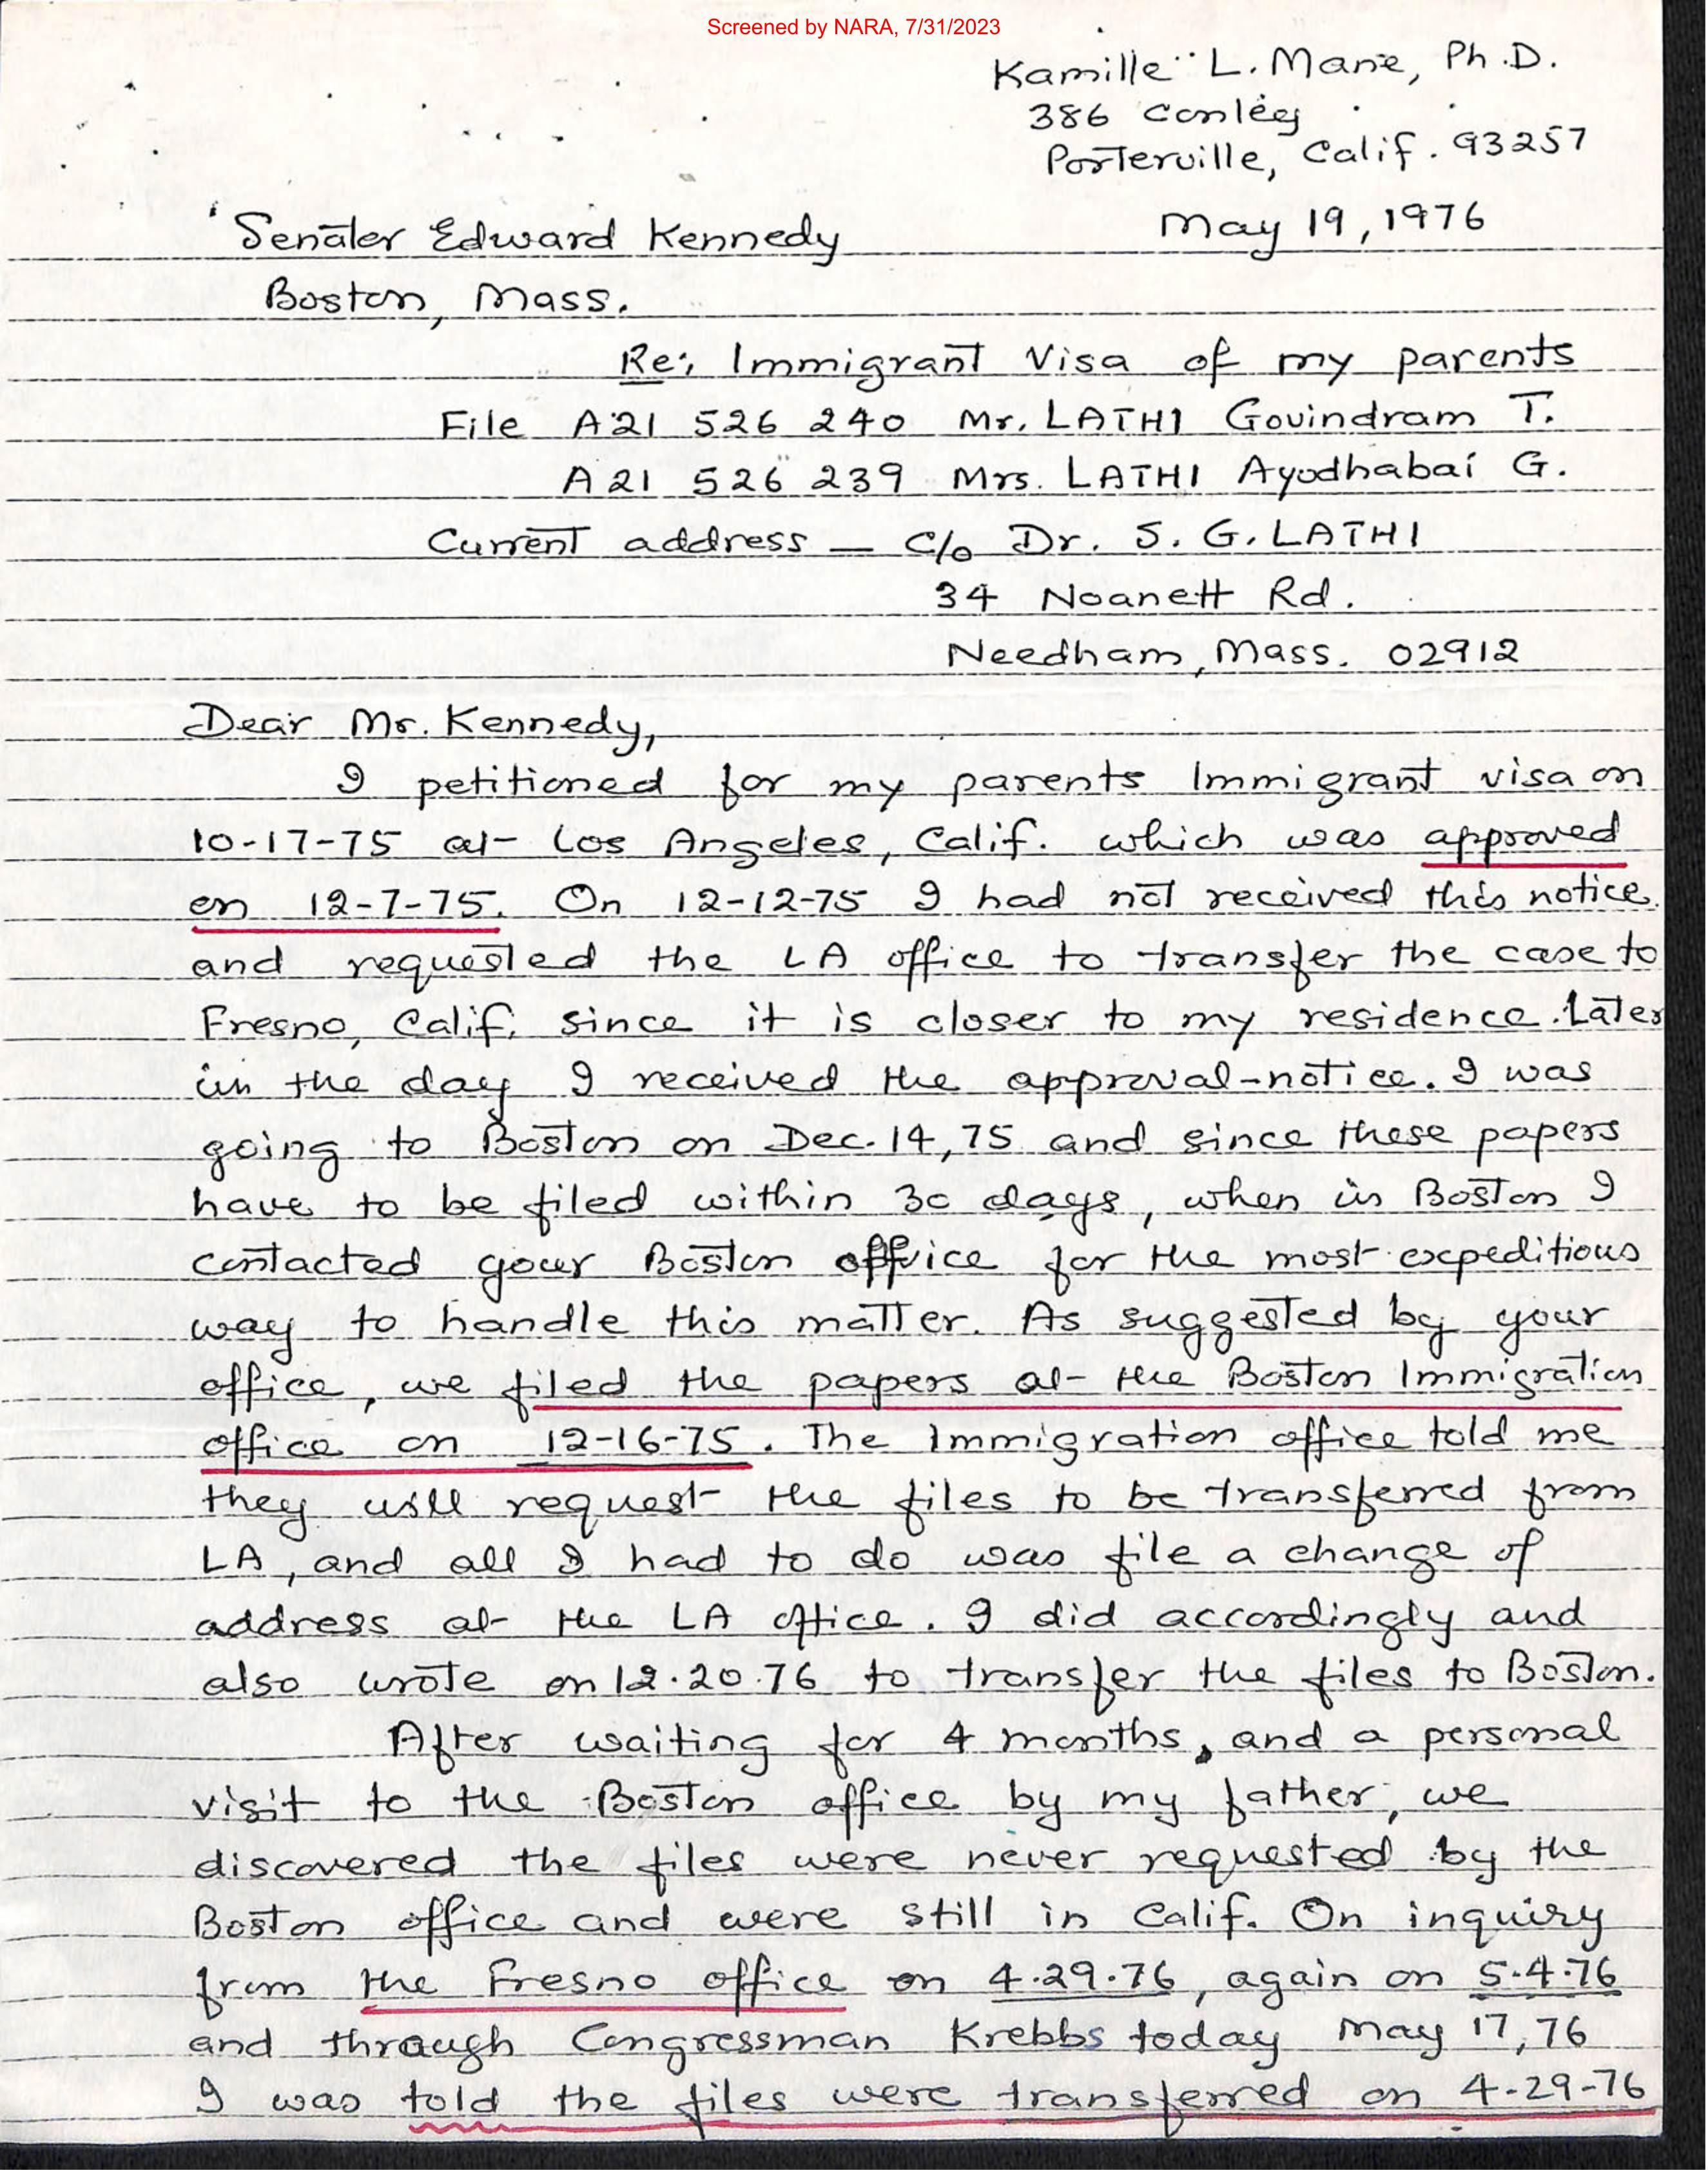 Screened by NARA, 7/31/2023
Kamille L. Mane, Ph.D.
386 Conley
Porterville, Calif. 93257
May 19, 1976
Senator Edward Kennedy
Boston, Mass.
Re: Immigrant Visa of my parents
File A21 526 240 Mr. LATHI Govindram T.
A21 526 239 Mrs. LATHI Ayodhabai G.
Current address — c/o Dr. S. G. LATHI
34 Noanett Rd.
Needham, Mass. 02912
Dear Mr. Kennedy,
I petitioned for my parents Immigrant visa on
10-17-75 at Los Angeles, Calif. which was approved
on 12-7-75. On 12-12-75 I had not received this notice
and requested the LA office to transfer the case to
Fresno, Calif. since it is closer to my residence. Later
in the day I received the approval-notice. I was
going to Boston on Dec. 14, 75 and since these papers
have to be filed within 30 days, when in Boston I
contacted your Boston office for the most expeditious
way to handle this matter. As suggested by your
office, we filed the papers at the Boston Immigration
office on 12-16-75. The Immigration office told me
they will request the files to be transferred from
LA, and all I had to do was file a change of
address at the LA office. I did accordingly and
also wrote on 12.20.76 to transfer the files to Boston.
After waiting for 4 months, and a personal
visit to the Boston office by my father, we
discovered the files were never requested by the
Boston office and were still in Calif. On inquiry
from the Fresno office on 4.29.76, again on 5.4.76
and through Congressman Krebbs today May 17, 76
I was told the files were transferred on 4-29-76